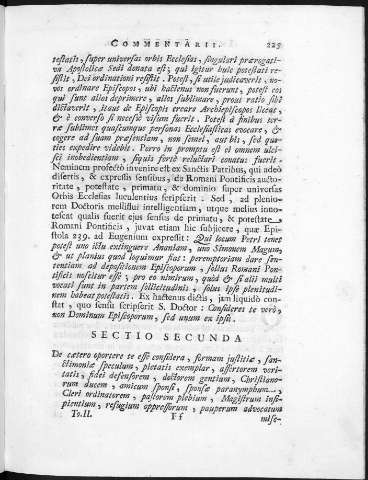 COMMENTARII. 225
testatis, super universas orbis Ecclesias, singulari prærogati-
va Apostolicæ Sedi donata est; qui igitur huic potestati re-
sistit, Dei ordinationi resistit. Potest, si utile judicaverit, no-
vos ordinare Episcopos, ubi hactenus non fuerunt, potest eos
qui sunt alios deprimere, alios sublimare, prout ratio sibi
dictaverit, itaut de Episcopis creare Archiepiscopos liceat,
& è converso si necesse visum fuerit. Potest à finibus ter-
ræ sublimes quascumque personas Ecclesiasticas evocare, &
cogere ad suam præsentiam, non semel, aut bis, sed quo-
ties expedire videbit. Porro in promptu est ei omnem ulci-
sci inobedientiam, siquis fortè reluctari conatus fuerit.
Neminem profectò invenire est ex Sanctis Patribus, qui adeò
disertis, & expressis sensibus, de Romani Pontificis aucto-
ritate, potestate, primatu, & dominio super universas
Orbis Ecclesias luculentius scripserit. Sed, ad plenio-
rem Doctoris melliflui intelligentiam, utque melius inno-
tescat qualis fuerit ejus sensus de primatu, & potestate
Romani Pontificis, juvat etiam hic subjicere, quæ Epi-
stola 239. ad Eugenium expressit: Qui locum Petri tenet
potest uno ictu extinguere Ananiam, uno Simonem Magum,
& ut planius quod loquimur fiat: peremptoriam dare sen-
tentiam ad depositionem Episcoporum, solius Romani Pon-
tificis noscitur esse; pro eo nimirum, quòd & si alii multi
vocati sunt in partem sollicitudinis, solus ipse plenitudi-
nem habeat potestatis. Ex hactenus dictis, jam liquidò con-
stat, quo sensu scripserit S. Doctor: Consideres te verò,
non Dominum Episcoporum, sed unum ex ipsis.
SECTIO SECUNDA
De cætero oportere te esse considera, formam justitiæ, san-
ctimoniæ speculum, pietatis exemplar, assertorem veri-
tatis, fidei defensorem, doctorem gentium, Christiano-
rum ducem, amicum sponsi, sponsæ paranymphum,
Cleri ordinatorem, pastorem plebium, Magistrum insi-
pientium, refugium oppressorum, pauperum advocatum
To.II. Ff mise-